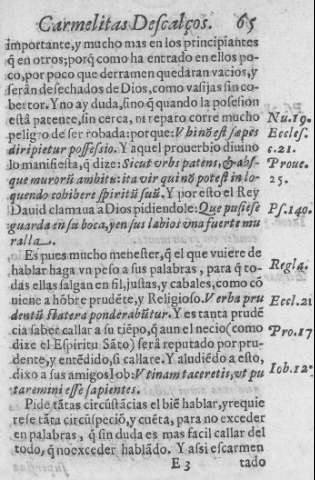 Carmelitas Descalços. 65
importante, y mucho mas en los principiantes
q̃ en otros; porq̃ como ha entrado en ellos po-
co, por poco que derramen quedaran vacios, y
serãn desechados de Dios, como vasijas sin co-
bertor. Y no ay duda, sino q̃ quando la posesion
està patente, sin cerca, ni reparo corre mucho
peligro de ser robada: porque: Vbi nõ est sæpes
diripietur possessio. Y aquel prouerbio diuino
lo manifiesta, q̃ dize: Sicut vrbs patens, & abs-
que murorũ ambitu: ita vir qui nõ potest in lo-
quendo cohibere spiritũ suũ. Y por esto el Rey
Dauid clamaua a Dios pidiendole: Que pusiese
guarda en su boca, y en sus labios vna fuerte mu
ralla.
Es pues mucho menester, q̃ el que vuiere de
hablar haga vn peso a sus palabras, para q̃ to-
das ellas salgan en fil, justas, y cabales, como cõ
niene a hõbre prudẽte, y Religioso. Verba pru
dentũ statera ponderabũtur. Y es tanta prudẽ
cia saber callar a su tiẽpo, q̃ aun el necio (como
dize el Espiritu Sãto) serà reputado por pru-
dente, y entẽdido, si callare. Y aludiẽdo a esto,
dixo a sus amigos Iob: Vtinam taceretis, vt pu
taremini esse sapientes.
Pide tãtas circũstãcias el biẽ hablar, y requie
rese tãta circũspeciõ, y cuẽta, para no exceder
en palabras, q̃ sin duda es mas facil callar del
todo, q̃ no exceder hablãdo. Y assi escarmen
E 3 tado
Nu. 19.
Eccles.
c. 21.
Proue.
25.
Ps. 140.
Regla.
Eccl. 21
Pro. 17
Iob. 12.